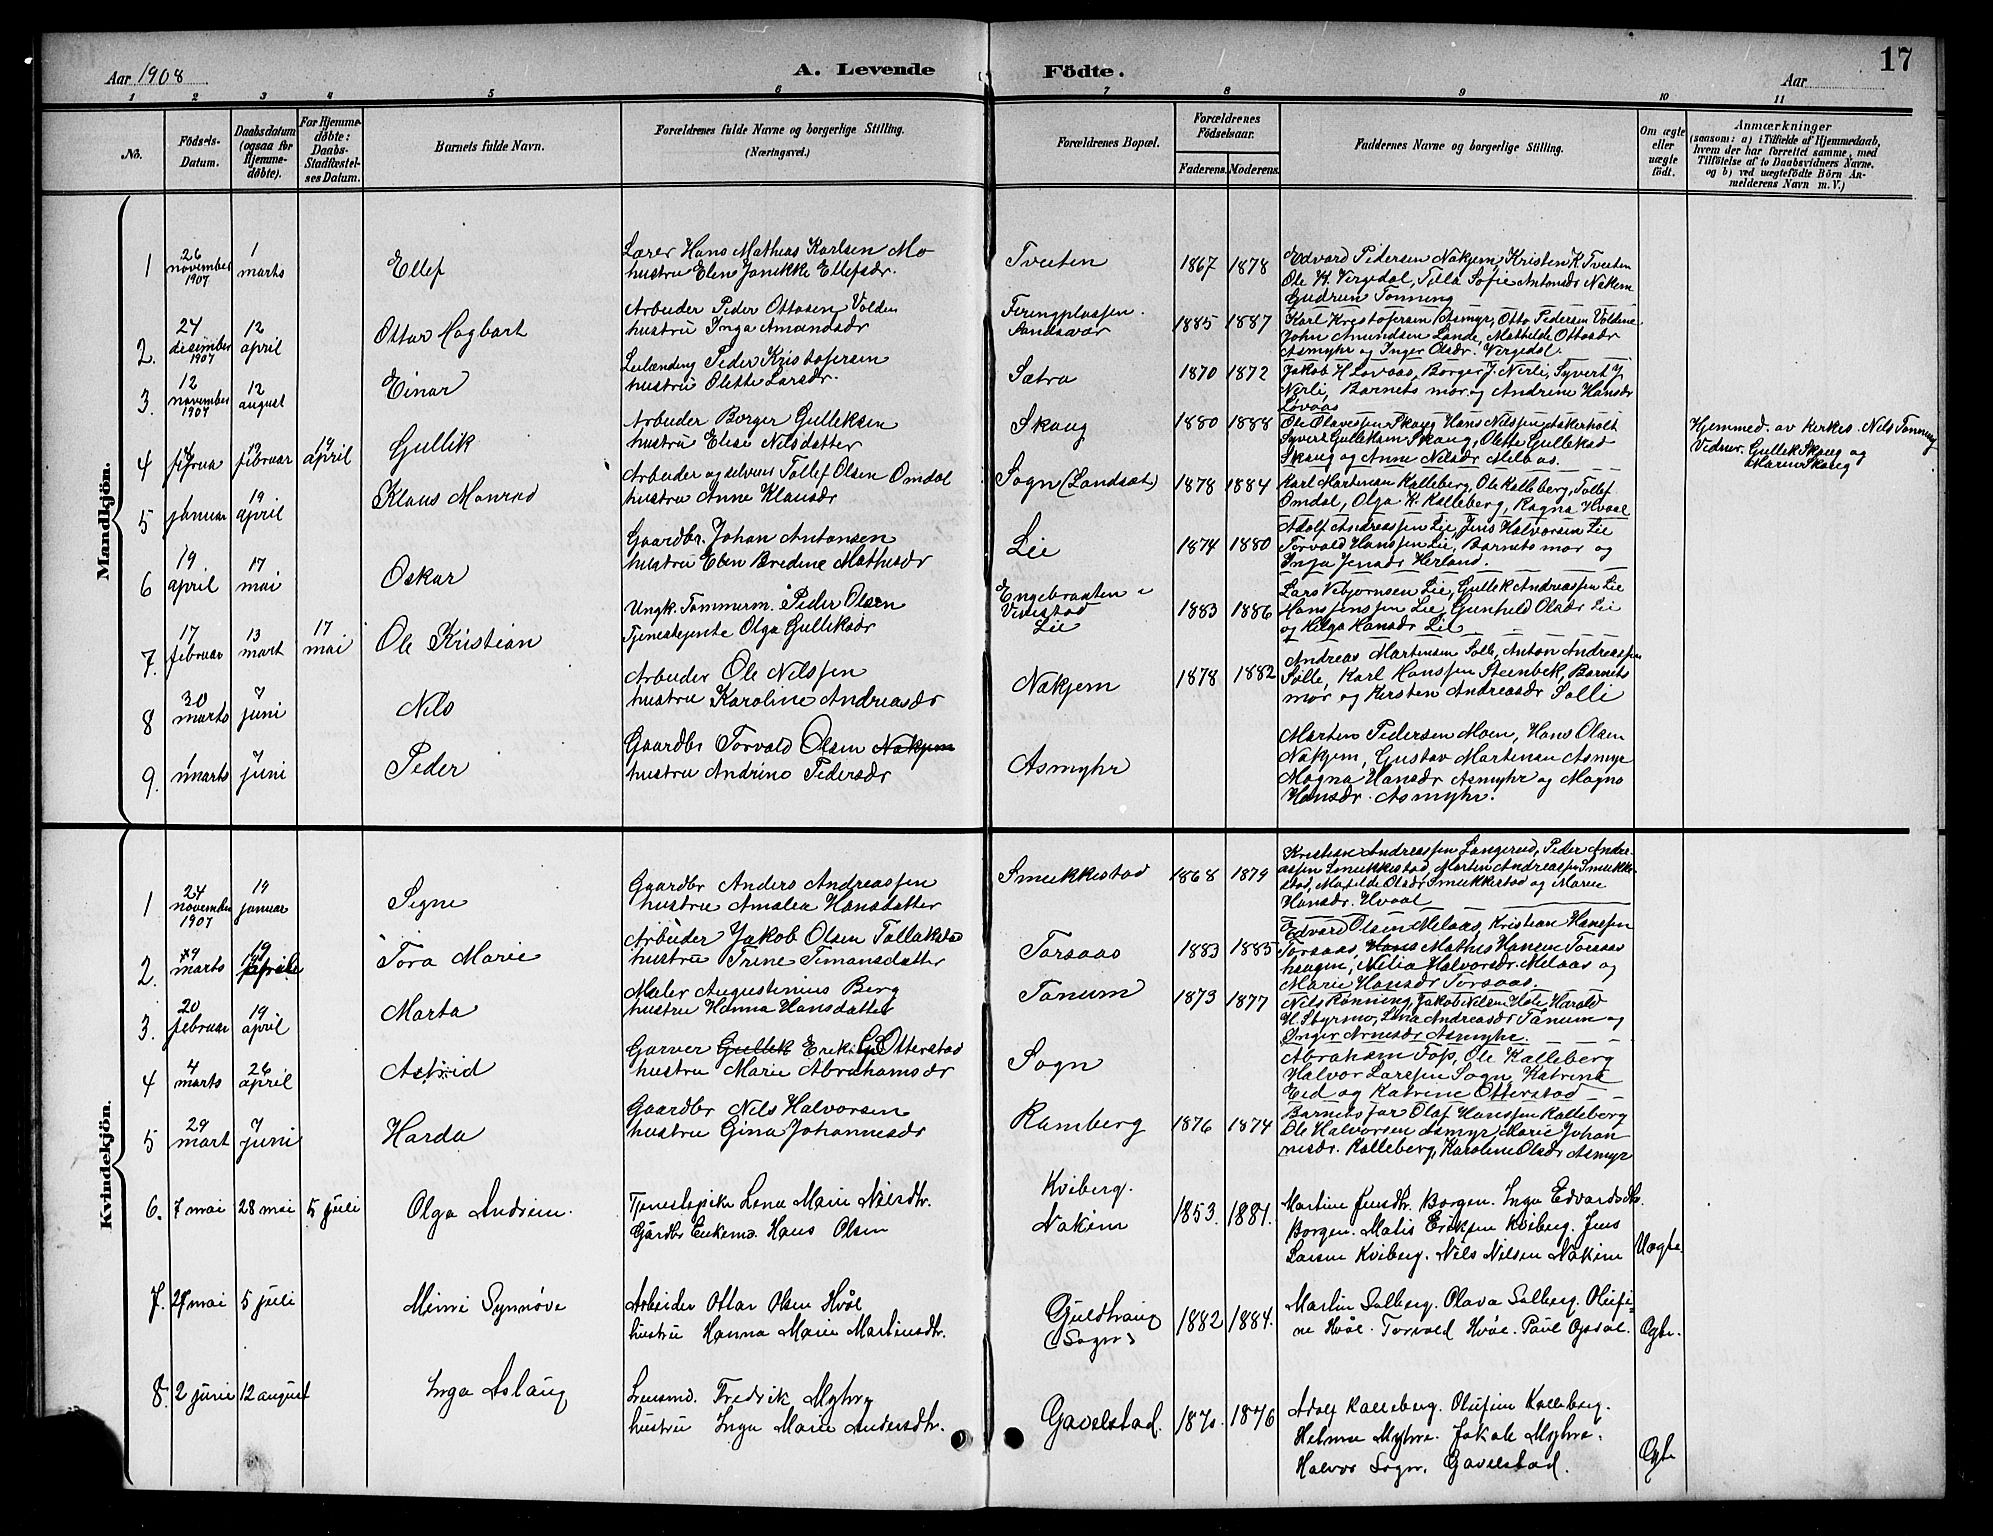 17
Aar 1908
A. Levende Födte.
Aar
1 2 3 4 5 6 7 8 9 10 11
No.
Födsels-Datum.
Daabsdatum (ogsaa for Hjemme-døbte).
For Hjemme-døbte: Daabs-Stadfæstel-ses Datum.
Barnets fulde Navn.
Forældrenes fulde Navne og borgerlige Stilling.
(Næringsvei.)
Forældrenes Bopæl.
Forældrenes Födselsaar.
Faderens. Moderens.
Faddernes Navne og borgerlige Stilling.
Om ægte eller uægte født.
Anmærkninger
(saasom: a) i Tilfælde af Hjemmedaab,
hvem der har forrettet samme, med
Tilföielse af to Daabsvidners Navne.
og b) ved uægtefödte Börn An-
melderens Navn m. V.)
Mandkjön.
1 26 november 1907 1 marts Ellef
Lærer Hans Mathias Karlsen Mo
hustru Eline Janikke Ellefsdr.
Tveten 1867 1878
Edvard Pedersen Nakjem, Kristen K Tveten
Ole K. Vergedal, Tilla Sofie Antonsdr Nakjem
Gudrun Tønning
2. 24 desember 1907 12 april Ottar Hagbart
Arbeider Peder Ottosen Volden
hustru Inga Amundsdr
Feringplassen Sandsvær 1885 1887
Karl Kristofersen Asmyr, Otto Pedersen Voldene
John Amundsen Lande, Mathilde Ottosdr
Asmyhr og Inger Olsdr. Vergedal.
3. 12 november 1907 12 august Einar
Leilending Peder Kristofersen
hustru Olette Larsdr.
Sætra 1870 1872
Jakob H Lovaas, Borger J. Nerli, Syvert J
Nerli, Barnets mor og Andrine Hansdr
Løvaas
4 februar 19 april Gullik
Arbeider Borger Gulleksen
hustru Elise Nilsdatter
Skaug 1880 1888
Ole Olavesen Skaug Hans Nilssen Aakerholt
Syvert Gulleksen Skaug, Olette Gulleksd
Skaug og Anne Nilsdr Melaas.
Hjemmed. av kirkes. Nils Tønning
Vidner. Gullek Skaug og
Maren Skaug
5 januar 19 april Klaus Monrad
Arbeider og selveier Tollef Olsen Omdal
hustru Anne Klausdr
Sogn (Landsat) 1878 1884
Karl Martinian Kalleberg, Ole Kalleberg, Tollef
Omdal, Olga K. Kalleberg, Ragna Hvaal
6 19 april 17 mai Oskar
Gaardbr. Johan Antonsen
hustru Elen Bredine Mathisdr
Lie 1874 1880
Adolf Andreassen Lie, Jens Halvorsen Lie
Torvald Hanssen Lie, Barnets mor og
Inga Jensdr Herland.
7. 17 februar 13 mart 17 mai Ole Kristian
Ungk. Tømmerm. Peder Olsen
Tjenestejente Olga Gulliksdr
Engebraaten i
Vivestad
Lie 1883 1886
Lars Vebjørnsen Lie, Gullek Andreassen Lie
Hans Jenssen Lie, Gunhild Olsdr Lie
og Helga Hansdr Lie
8 30 marts 7 juni Nils
Arbeider Ole Nilssen
hustru Karoline Andreasdr
Nakjem 1878 1882
Andreas Martensen Solli, Anton Andreassen
Solle, Karl Hanssen Steenbek, Barnets
mor og Kirsten Andreasdr Solli
9. 1 marts 7 juni Peder
Gaardbr Torvald Olsen Nakjem
hustru Andrine Pedersdr
Asmyhr
Marten Pedersen Moen, Hans Olsen
Nakjem, Gustav Martinsen Asmyr
Magna Hansdr Asmyhr og Magna
Hansdr. Asmyhr.
Kvindekjön.
1 24 november 1907 19 januar Signe
Gaardbr Anders Andreassen
hustru Amalia Hansdatter
Smukkestad 1868 1879
Kristian Andreassen Langerud, Peder Andre-
assen Smukkestad, Morten Andreassen Smukke-
stad, Matilde Olsdr Smukkestad og Marie
Hansdr. Hvaal
2. marts 19 april Tora Marie
Arbeider Jakob Olsen Tollakstad
hustru Trine Timansdatter
Torsaas 1883 1885
Edvard Olsen Melaas, Kristian Hanssen
Torsaas, Hans Mathis Hansen Torsaas
haugen, Nilia Halvorsdr. Melaas og
Marie Hansdr Torsaas.
3. 20 februar 19 april Marta
Maler Augustinius Berg
hustru Hanna Hansdatter
Tanum 1873 1877
Nils Rønning, Jakob Nilsen Hole Harald
H. Styrmo, Lina Andreasdr Tanum og
Inger Arnesdr Asmyhr.
4 4 marts 26 april Astrid
Garver Gullek Erik G. Otterstad
hustru Marie Abrahamsdr
Sogn
Abraham Fos, Ole Kalleberg
Halvor Larsen Sogn, Katrine
Eid og Katrine Otterstad
5 29 mart 7 juni Harda
Gaardbr Nils Halvorsen
hustru Gina Johannesdr
Ramberg 1876 1874
Barnets far Olaf Hanssen Kalleberg
Ole Halvorsen Asmyr, Marie Johan
nesdr. Kalleberg, Karoline Olsdr Asmyr
6. 7 mai 28 mai 5 juli Olga Andrine.
Tjenestepike Lena Marie Nilsdtr.
Gårdbr Enkem. Hans Olsen
Kviberg.
Nakim 1853. 1881.
Martine Jensdtr. Borgen. Inga Edvardsdtr.
Borgen. Matis Eriksen Kviberg. Jens
Larsen Kviberg. Nils Nilsen Nakim
Uægte.
7. 27 mai 5 juli Mimi Synnøve
Arbeider Ottar Olsen Hvål
hustru Hanna Marie Martinsdtr.
Guldhaug
(Sogn) 1882 1884.
Martin Solberg. Olava Solberg. Olufi-
ne Hvål. Torvald Hvål. Paul Opdal.
Ægte.
8. 2 juni 12 august Inga Aslaug
Lensmd. Fredrik Myhre
hustru Inga Marie Andersdtr.
Gavelstad. 1870. 1876
Adolf Kalleberg. Olufine Kalleberg.
Helma Myhre. Jakob Myhre.
Halvor Sogn. Gavelstad.
Ægte